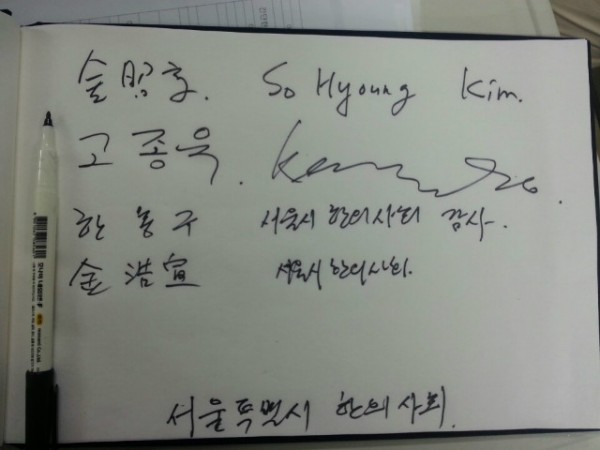 金昭亨. So Hyoung Kim.
고종욱.
한동구 서울시 한의사회 감사.
金浩宣 서울시 한의사회.
서울특별시 한의사회.